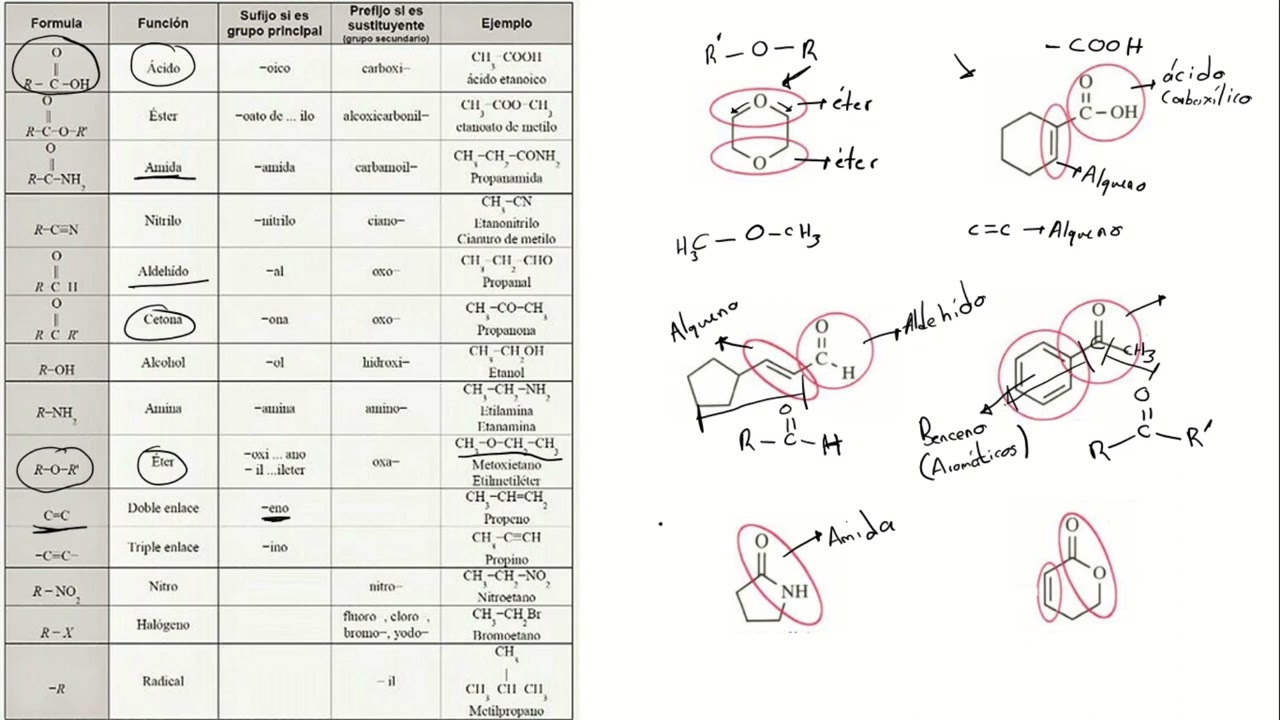 Formula Función Sufijo si es grupo principal Prefijo si es sustituyente (grupo secundario) Ejemplo
O
||
R-C-OH Ácido -oico carboxi- CH3-COOH
ácido etanoico
O
||
R-C-O-R' Éster -oato de ... ilo alcoxicarbonil- CH3-COO-CH3
etanoato de metilo
O
||
R-C-NH2 Amida -amida carbamoil- CH3-CH2-CONH2
Propanamida
R-C≡N Nitrilo -nitrilo ciano- CH3-CN
Etanonitrilo
Cianuro de metilo
O
||
R C H Aldehído -al oxo- CH3-CH2-CHO
Propanal
O
||
R C R' Cetona -ona oxo- CH3-CO-CH3
Propanona
R-OH Alcohol -ol hidroxi- CH3-CH2OH
Etanol
R-NH2 Amina -amina amino- CH3-CH2-NH2
Etilamina
Etanamina
R-O-R' Éter -oxi ... ano
- il ...ileter oxa- CH3-O-CH2-CH3
Metoxietano
Etilmetiléter
C=C Doble enlace -eno CH3-CH=CH2
Propeno
-C=C- Triple enlace -ino CH3-C≡CH
Propino
R-NO2 Nitro nitro- CH3-CH2-NO2
Nitroetano
R-X Halógeno fluoro , cloro ,
bromo-, yodo- CH3-CH2Br
Bromoetano
-R Radical - il CH3
|
CH3 CH CH3
Metilpropano
R'-O-R
O éter
O éter
H3C-O-CH3
-COOH
O
C-OH
ácido
carboxílico
Alqueno
C=C → Alqueno
Alqueno
O
C
H
Aldehído
O
||
R-C-H
O
C
CH3
Benceno
(Aromáticos)
O
||
R-C-R'
O
NH
Amida
O
O